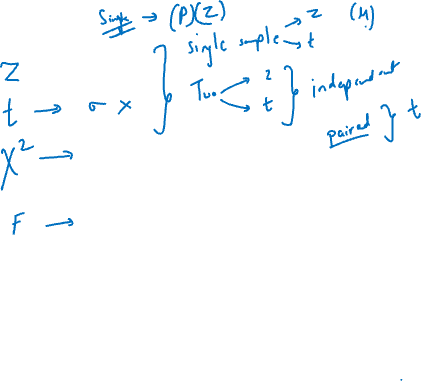 Single → (P)(Z)
single sample → z (μ)
→ t
Z
Two → z } independent
→ t
t → σ ×
paired } t
χ² →
F →